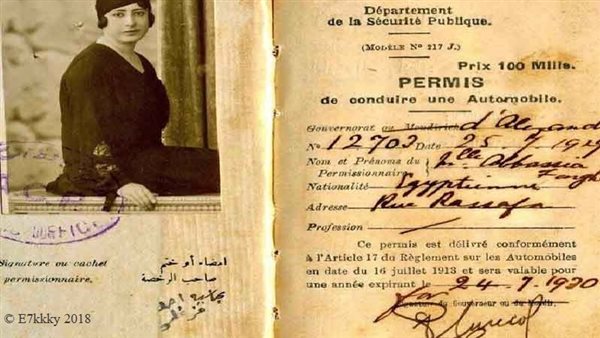 Signature ou cachet
permissionnaire.
امضاء أو ختم
صاحب الرخصة
Département
de la Sécurité Publique.
(MODÈLE N° 217 J.)
Prix 100 Mills.
PERMIS
de conduire une Automobile.
Gouvernorat ou Moudirieh d'Alexand
N° 12703 Date 25-7-1929
Nom et Prénoms du Permissionnaire Mlle Abbassia
Nationalité Egyptienne
Adresse Rue Rassafa
Profession
Ce permis est délivré conformément
à l'Article 17 du Règlement sur les Automobiles
en date du 16 juillet 1913 et sera valable pour
une année expirant le 24-7-1930
Signature du Gouverneur ou du Moudir.
© E7kkky 2018